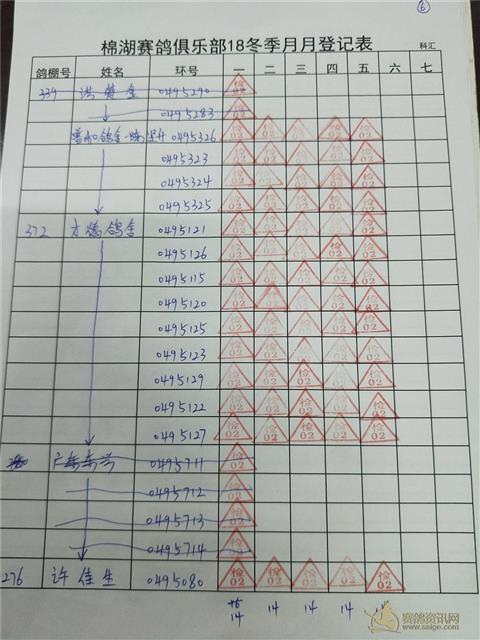 ⑥
棉湖赛鸽俱乐部18冬季月月登记表
科汇
鸽棚号 姓名 环号 一 二 三 四 五 六 七
339 0495290 检02
0495283 检02
0495326 检02 检02 检02 检02 检02
0495323 检02 检02 检02 检02 检02
0495324 检02 检02 检02 检02 检02
0495325 检02 检02 检02 检02 检02
372 0495121 检02 检02 检02 检02 检02
0495126 检02 检02 检02 检02 检02
0495115 检02 检02 检02 检02 检02
0495120 检02 检02 检02 检02 检02
0495125 检02 检02 检02 检02 检02
0495123 检02 检02 检02 检02 检02
0495129 检02 检02 检02 检02 检02
0495122 检02 检02 检02 检02 检02
0495127 检02 检02 检02 检02 检02
0495711 检02
0495712 检02
0495713 检02
0495714 检02
276 许佳生 0495080 检02 检02 检02 检02 检02
14 14 14 14
赛鸽资讯网
www.saige.com